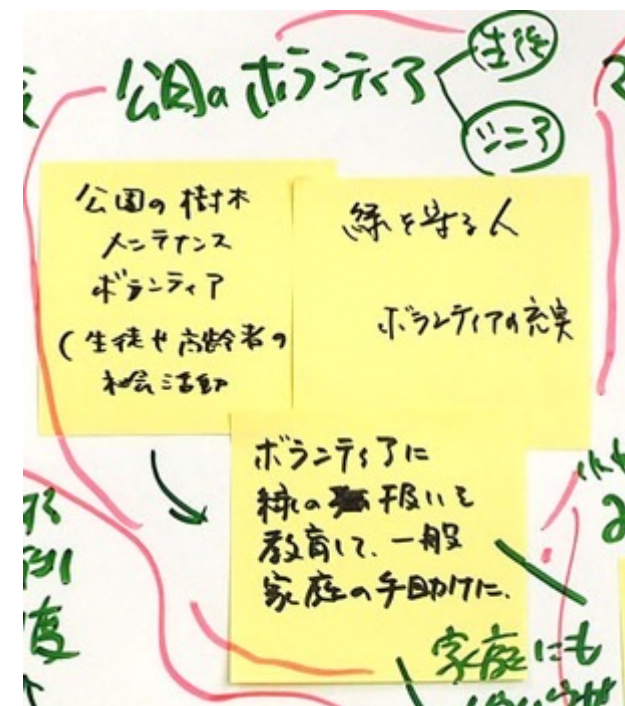 公園のボランティア
生徒
シニア
公園の樹木
メンテナンス
ボランティア
(生徒や高齢者の
社会活動
緑を守る人
ボランティアの充実
ボランティアに
緑の扱いを
教育して、一般
家庭の手助けに.
家庭にも
度